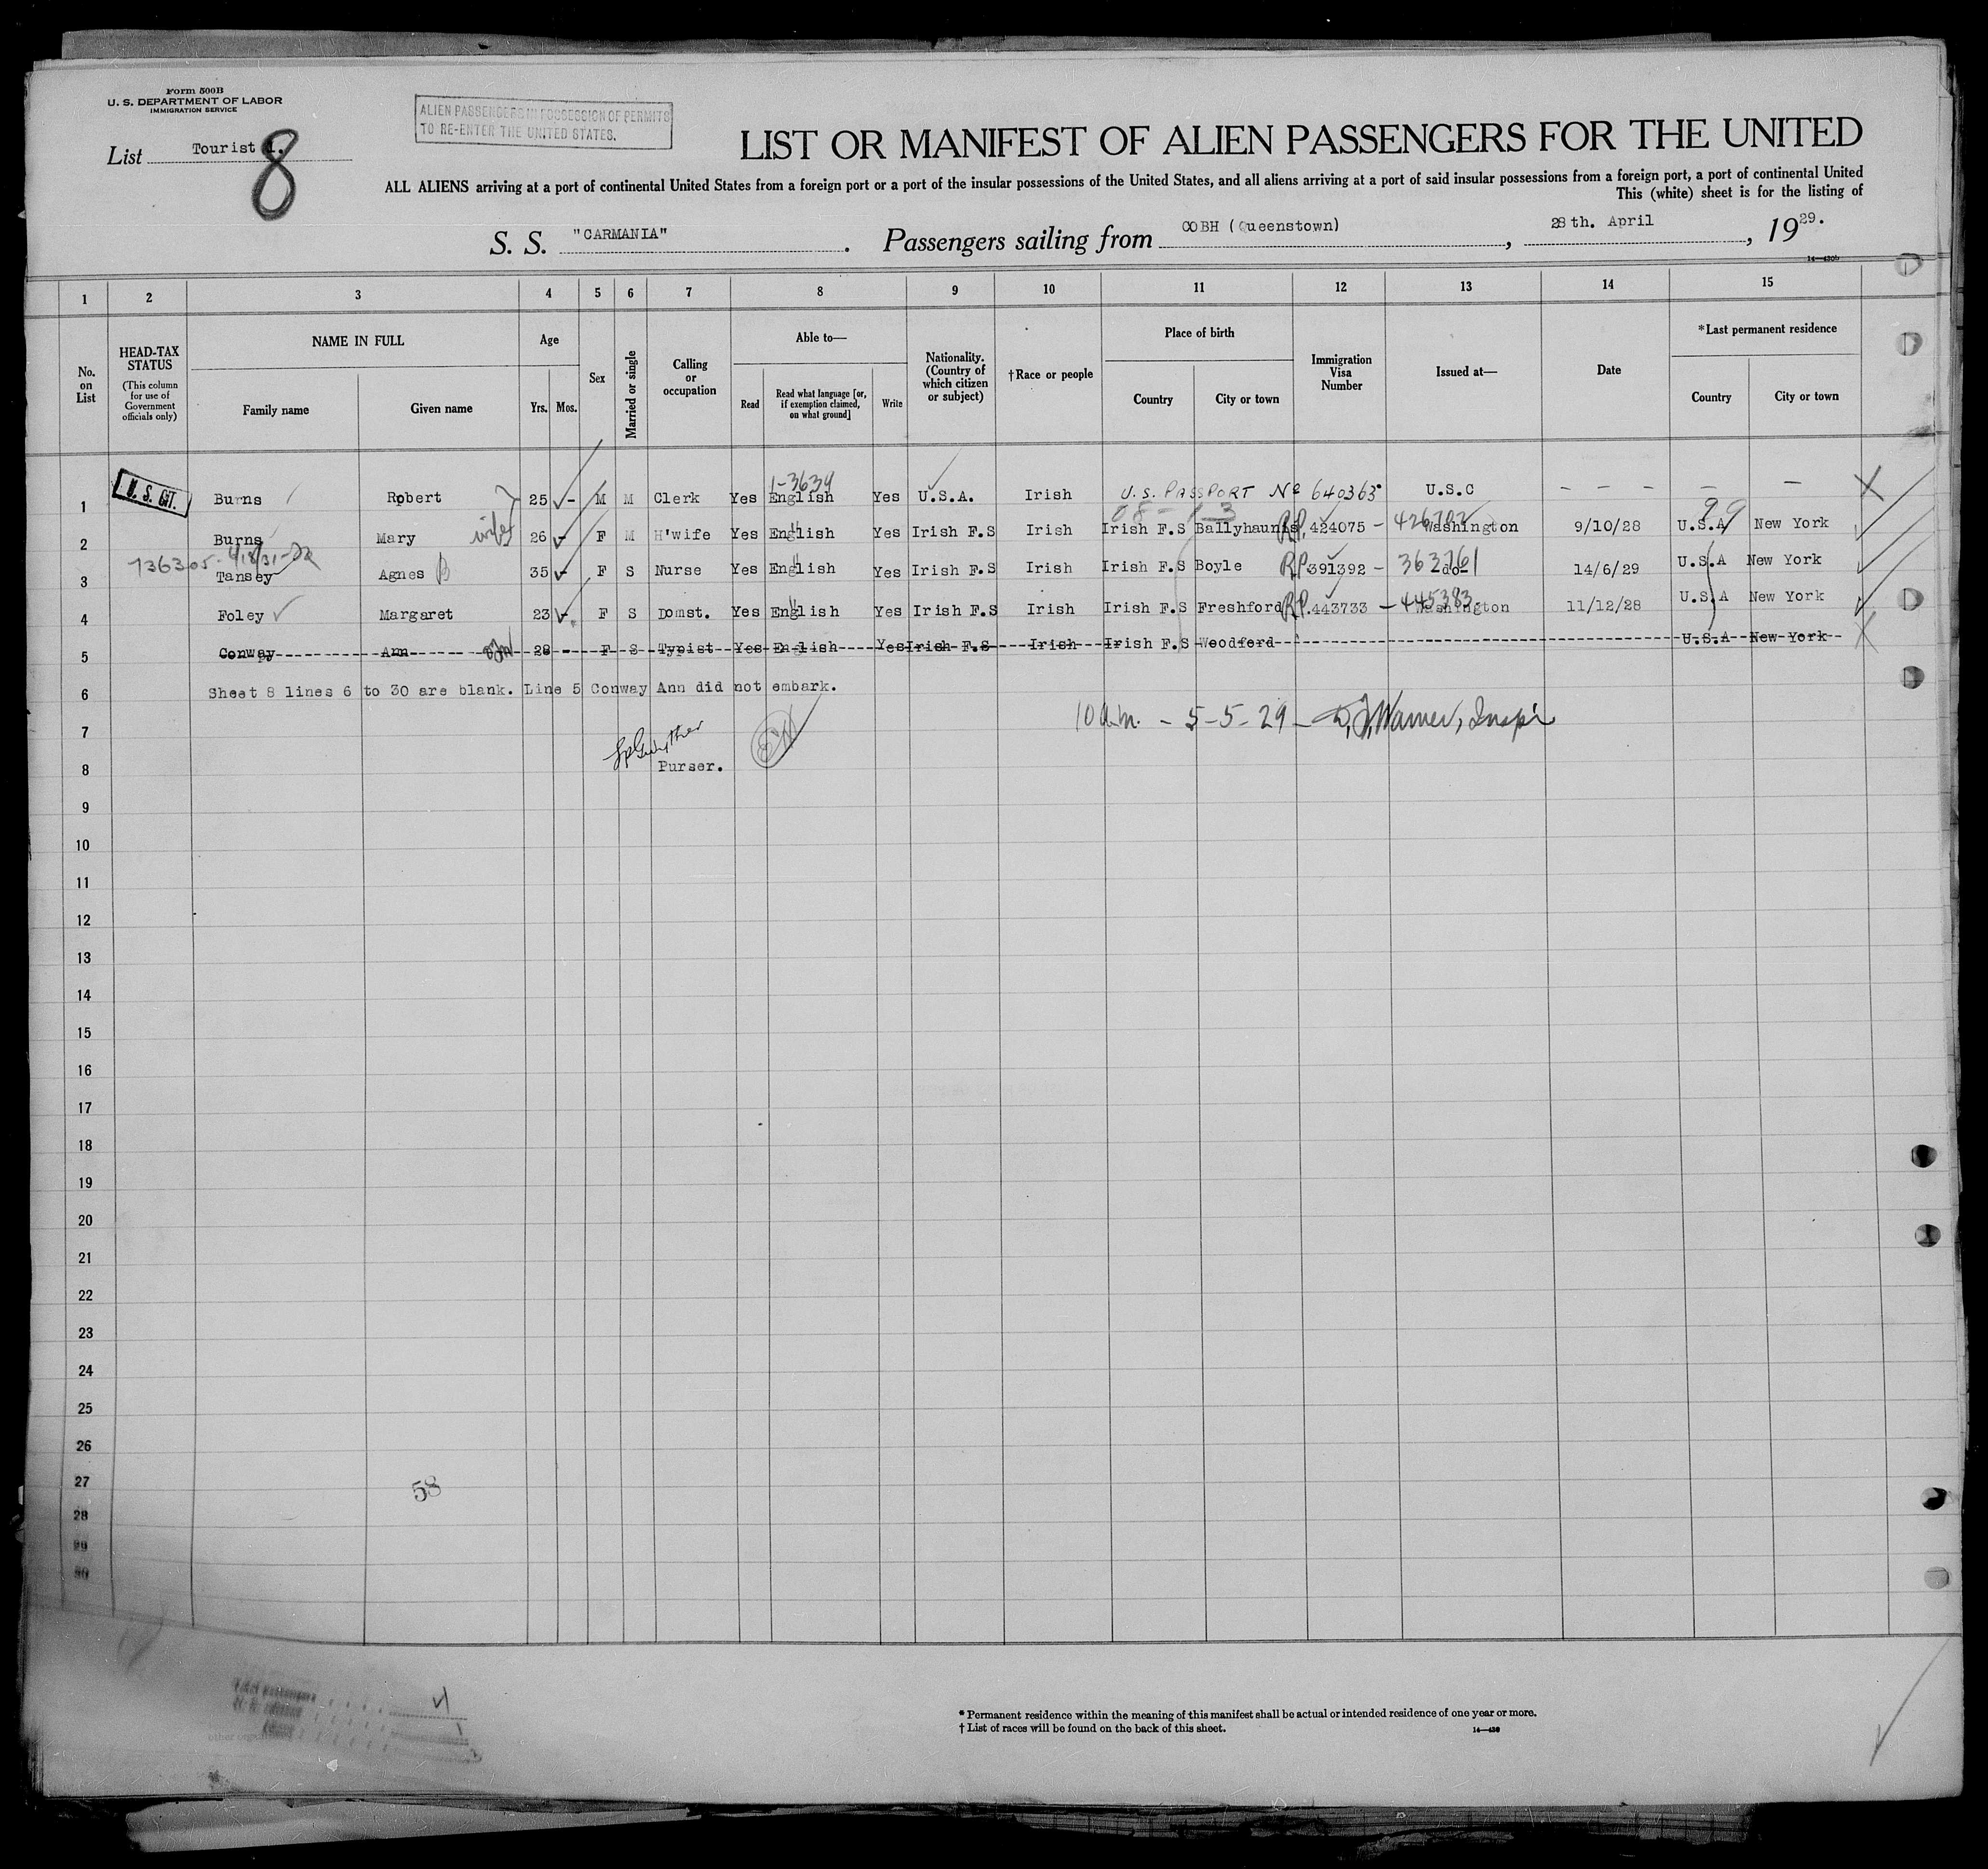 Form 500B
U. S. DEPARTMENT OF LABOR
IMMIGRATION SERVICE
ALIEN PASSENGERS IN POSSESSION OF PERMITS
TO RE-ENTER THE UNITED STATES.
List Tourist 1.
8
LIST OR MANIFEST OF ALIEN PASSENGERS FOR THE UNITED
ALL ALIENS arriving at a port of continental United States from a foreign port or a port of the insular possessions of the United States, and all aliens arriving at a port of said insular possessions from a foreign port, a port of continental United
This (white) sheet is for the listing of
S. S. "CARMANIA". Passengers sailing from COBH (Queenstown), 28th. April, 1929.
14—430b
1 2 3 4 5 6 7 8 9 10 11 12 13 14 15
No. on List
HEAD-TAX STATUS
(This column for use of Government officials only)
NAME IN FULL
Family name Given name
Age
Yrs. Mos.
Sex
Married or single
Calling or occupation
Able to—
Read Read what language [or, if exemption claimed, on what ground] Write
Nationality. (Country of which citizen or subject)
†Race or people
Place of birth
Country City or town
Immigration Visa Number
Issued at—
Date
*Last permanent residence
Country City or town
1-3634
1 U.S. CIT. Burns Robert 25 - M M Clerk Yes English Yes U.S.A. Irish U.S. PASSPORT No 640363 U.S.C - - - - - X
2 Burns Mary wife 26 - F M H'wife Yes English Yes Irish F.S Irish Irish F.S Ballyhaunis R.P. 424075 - 426702 Washington 9/10/28 U.S.A New York
736305-
3 Tansey Agnes 35 - F S Nurse Yes English Yes Irish F.S Irish Irish F.S Boyle R.P. 391392 - 363761 do 14/6/29 U.S.A New York
4 Foley Margaret 23 - F S Domst. Yes English Yes Irish F.S Irish Irish F.S Freshford R.P. 443733 - 445383 Washington 11/12/28 U.S.A New York
5 Conway Ann 28 - F S Typist Yes English Yes Irish F.S Irish Irish F.S Woodford U.S.A New York X
6 Sheet 8 lines 6 to 30 are blank. Line 5 Conway Ann did not embark.
10 a.m. - 5-5-29 - D.J. Warner, Inspr
7
8 Purser.
9
10
11
12
13
14
15
16
17
18
19
20
21
22
23
24
25
26
27
58
28
29
30
4
* Permanent residence within the meaning of this manifest shall be actual or intended residence of one year or more.
† List of races will be found on the back of this sheet.
14—430